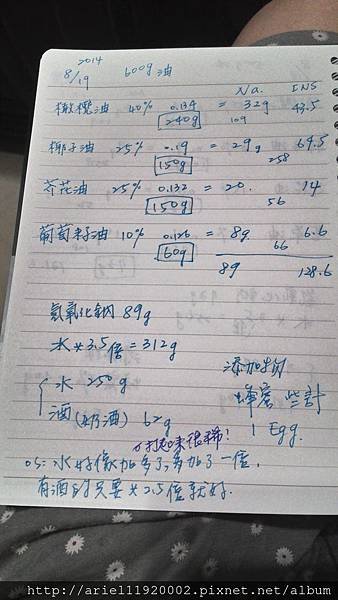 2014
8/19 600g油
Na. INS
橄欖油 40% 0.134 = 32g 43.5
240g 109
椰子油 25% 0.19 = 29g 64.5
150g 258
芥花油 25% 0.132 = 20. 14
150g 56
葡萄籽油 10% 0.126 = 8g 6.6
60g 66
89 128.6
氫氧化鈉 89g
水×3.5倍=312g
水 250g
酒(奶酒) 62g
添加物
蜂蜜些許
1 Egg.
打起來很稀!
OS:水好像加多了,多加了一倍,
有酒的只要×2.5倍就好.
http://ariel11920002.pixnet.net/album